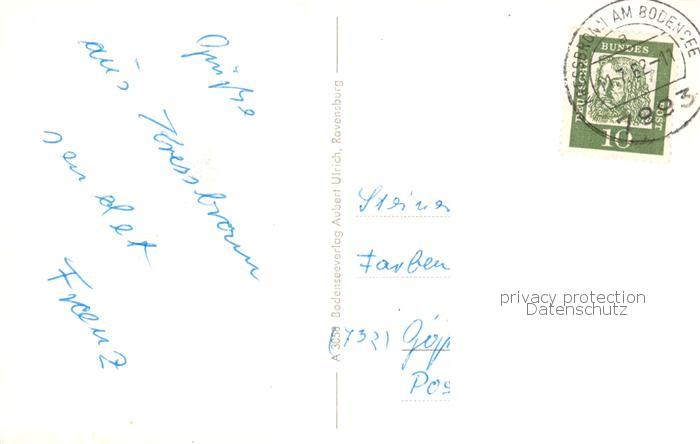 Grüße
aus Kressbronn
sendet
Franz
A 3058 Bodenseeverlag Aubert Ulrich, Ravensburg
Steiner
Farben
(732) Göp
Pos
BRONN AM BODENSEE
799 3
DEUTSCHE
BUNDES
POST
10
privacy protection
Datenschutz